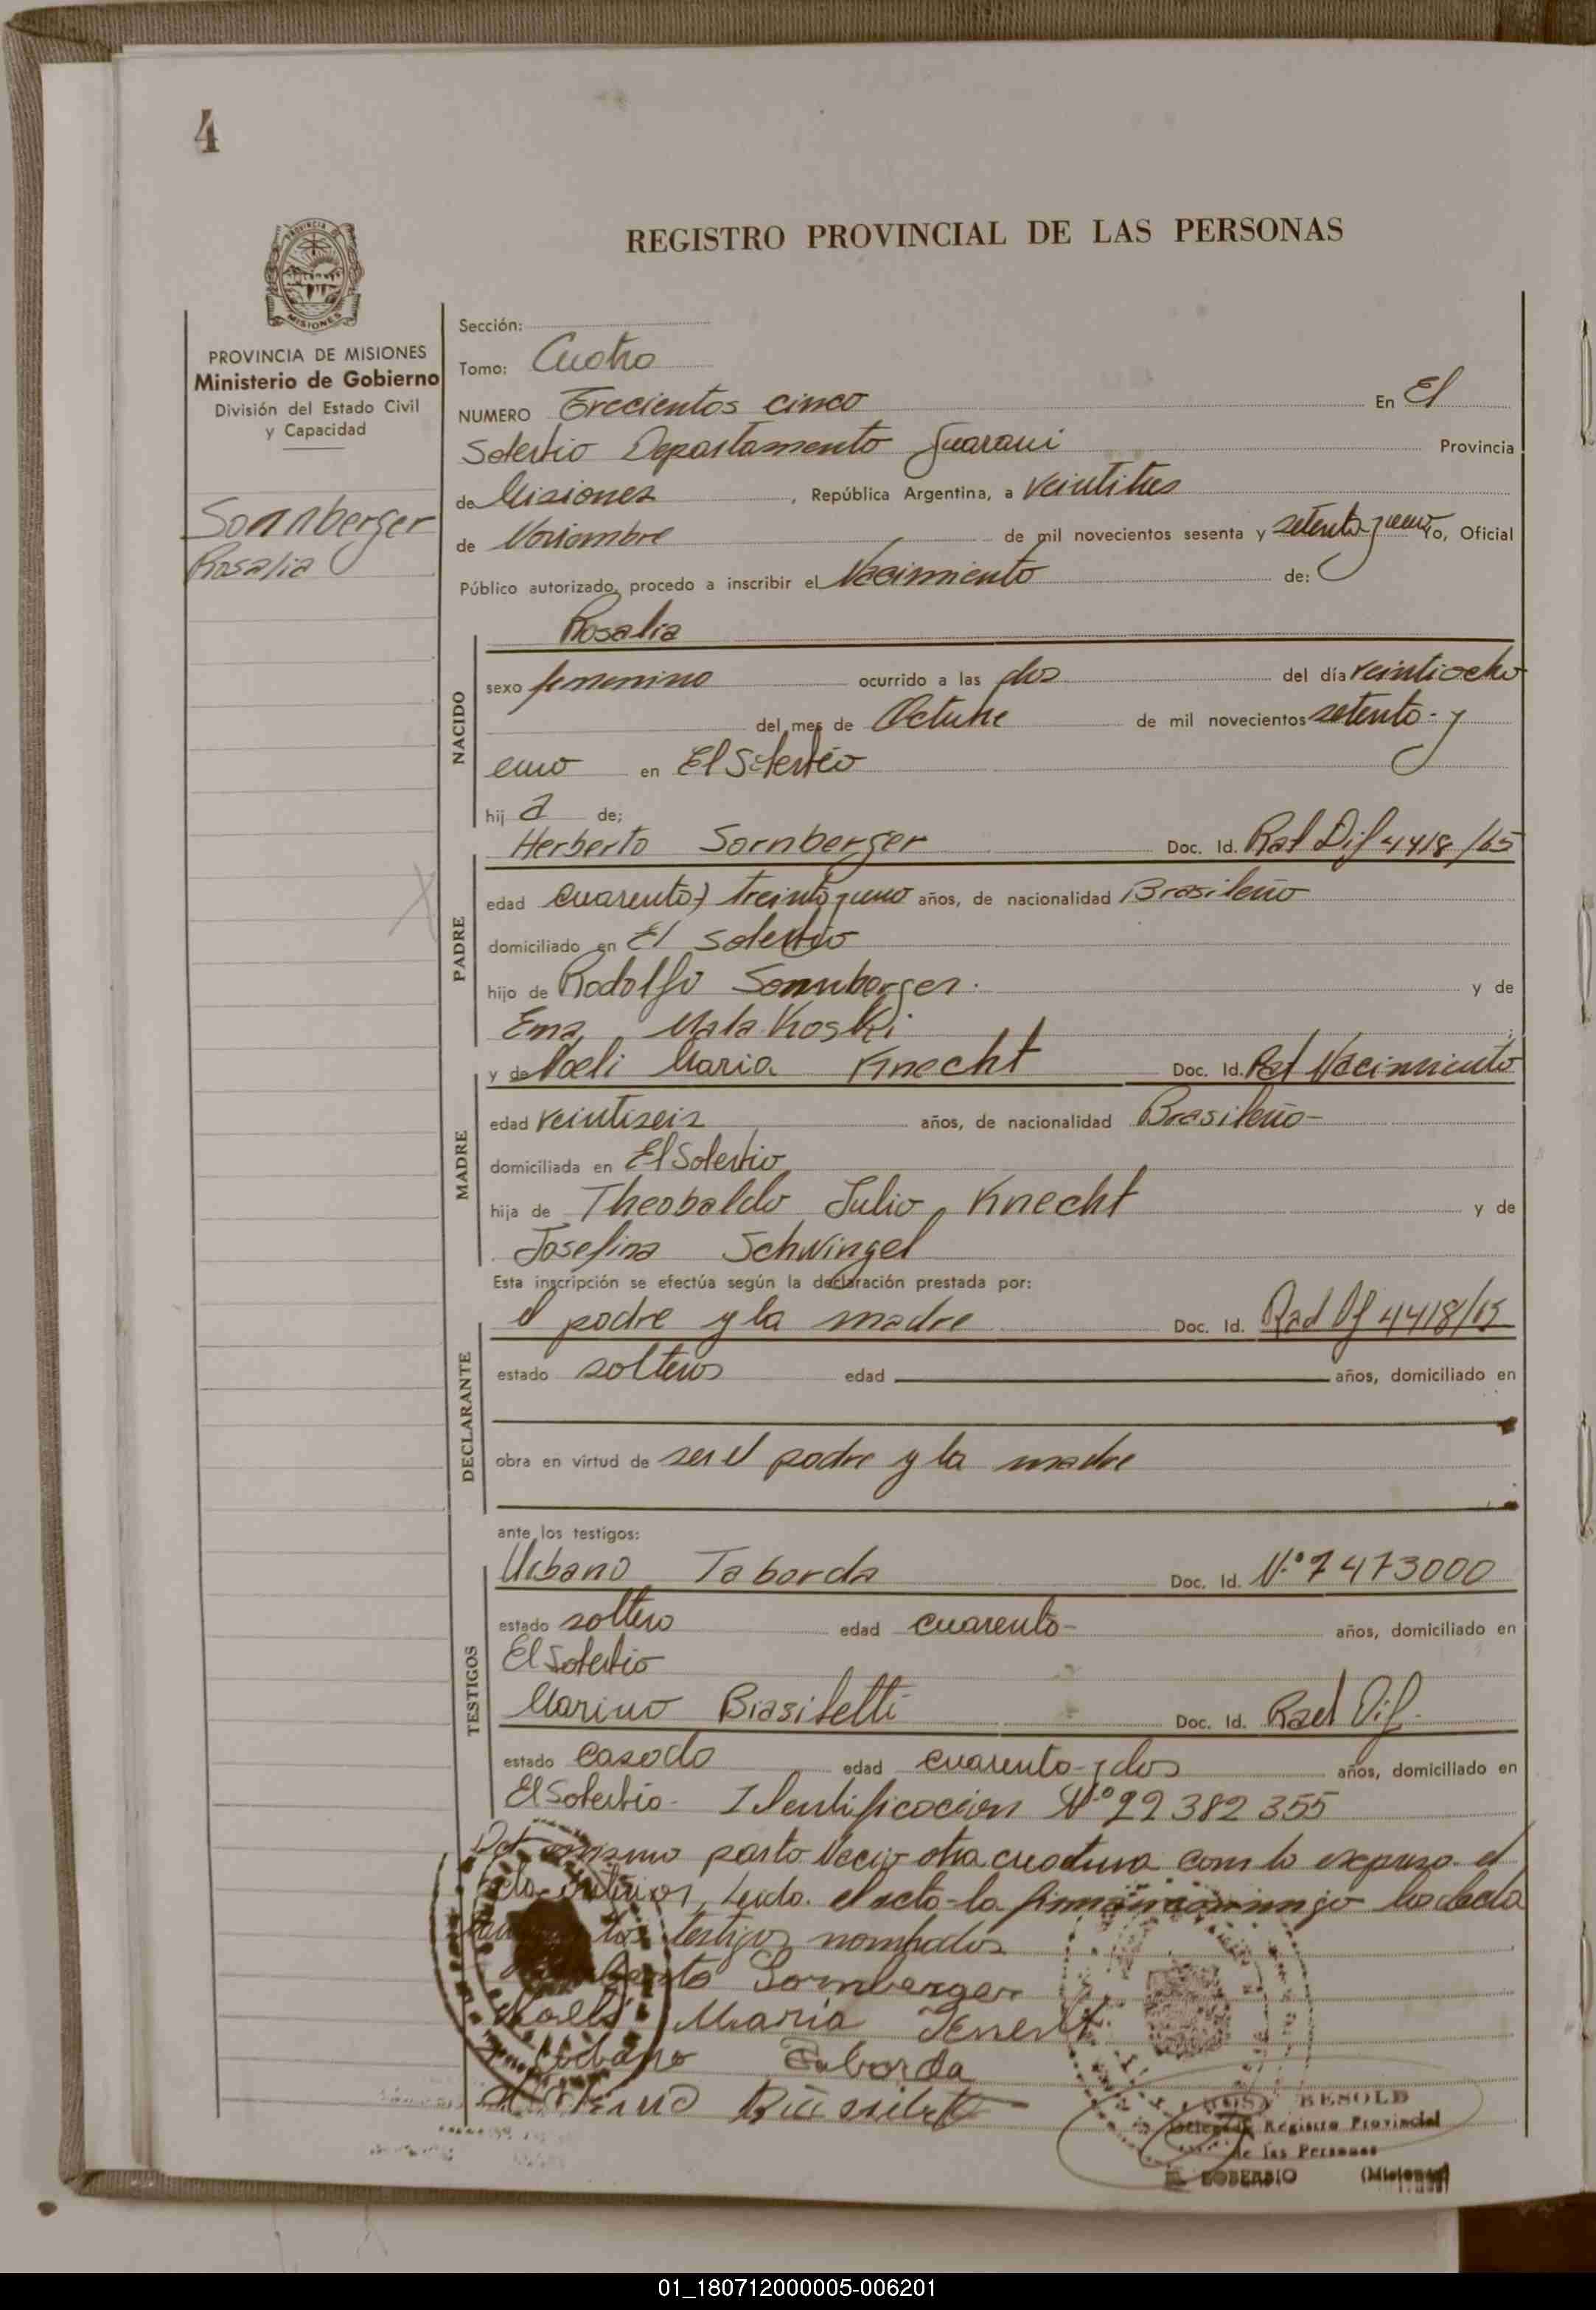 4
REGISTRO PROVINCIAL DE LAS PERSONAS
PROVINCIA DE
MISIONES
PROVINCIA DE MISIONES
Ministerio de Gobierno
División del Estado Civil
y Capacidad
Sonnberger
Rosalia
Sección:
Tomo: Cuatro
NUMERO Trecientos cinco En El
Soberbio Departamento Guarani Provincia
de Misiones, República Argentina, a veintitres
de Noviembre de mil novecientos sesenta y setenta y uno Yo, Oficial
Público autorizado, procedo a inscribir el Nacimiento de:
NACIDO
Rosalia
sexo femenino ocurrido a las dos del día veintiocho
del mes de Octubre de mil novecientos setenta - y
uno en El Soberbio
hij a de;
PADRE
Herberto Sornberger Doc. Id. Rad Dif 4418/65
edad cuarenta) treinta y uno años, de nacionalidad Brasileño
domiciliado en El Soberbio
hijo de Rodolfo Sonnberger. y de
Ema Malakoski ;
MADRE
y de Noeli Maria Knecht Doc. Id. Part Nacimiento
edad veintiseis años, de nacionalidad Brasileño -
domiciliada en El Soberbio
hija de Theobaldo Julio Knecht y de
Josefina Schwingel
Esta inscripción se efectúa según la declaración prestada por:
DECLARANTE
el padre y la madre Doc. Id. Rad Df 4418/65
estado solteros edad años, domiciliado en
obra en virtud de ser el padre y la madre
ante los testigos:
TESTIGOS
Urbano Taborda Doc. Id. N.º 7473000
estado soltero edad cuarenta - años, domiciliado en
El Soberbio
Marino Biasibetti Doc. Id. Rad Dif.
estado casado edad cuarenta y dos años, domiciliado en
El Soberbio - Identificacion N.º 22382355
Del mismo parto Nacio otra criatura como lo expresa el
acta anterior, Leida el acta la firman conmigo los decla
los testigos nombados
Sornberger
Noeli Maria
Urbano Taborda
Marino
RESOLD
Registro Provincial
de las Personas
EL SOBERBIO (Misiones)
01_180712000005-006201